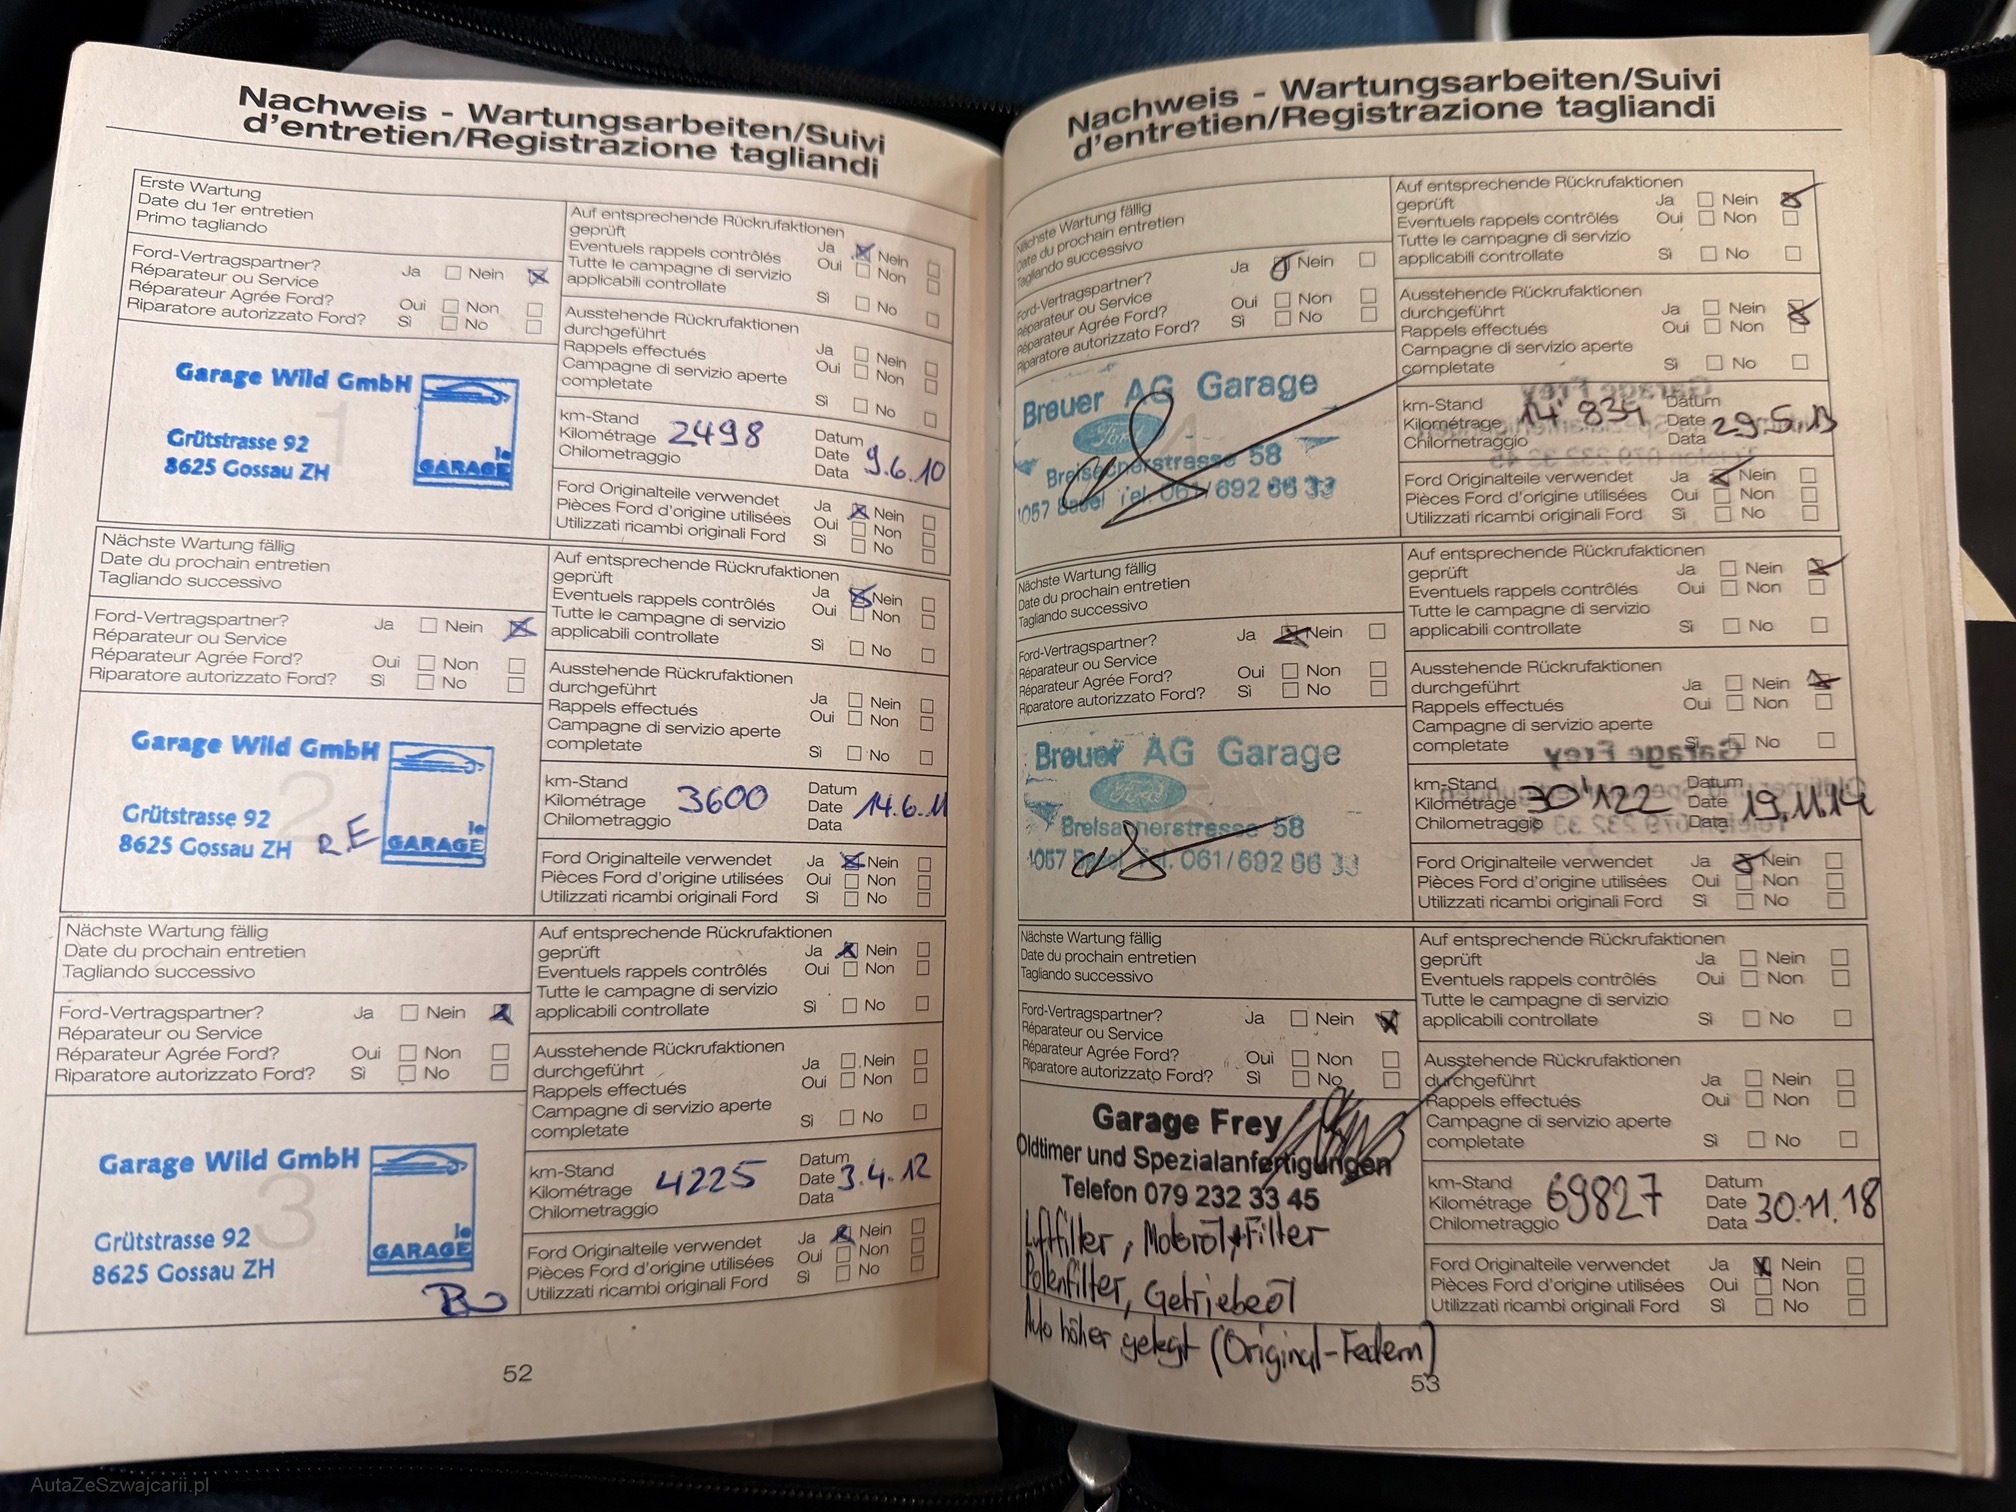 Nachweis - Wartungsarbeiten/Suivi
d'entretien/Registrazione tagliandi
Erste Wartung
Date du 1er entretien
Primo tagliando
Ford-Vertragspartner?
Réparateur ou Service
Réparateur Agrée Ford?
Riparatore autorizzato Ford?
Ja Nein
Oui Non
Sì No
Garage Wild GmbH
1
Grütstrasse 92
8625 Gossau ZH
1e
GARAGE
Auf entsprechende Rückrufaktionen
geprüft
Eventuels rappels contrôlés
Tutte le campagne di servizio
applicabili controllate
Ja Nein
Oui Non
Sì No
Ausstehende Rückrufaktionen
durchgeführt
Rappels effectués
Campagne di servizio aperte
completate
Ja Nein
Oui Non
Sì No
km-Stand
Kilométrage 2498
Chilometraggio
Datum
Date 9.6.10
Data
Ford Originalteile verwendet
Pièces Ford d'origine utilisées
Utilizzati ricambi originali Ford
Ja Nein
Oui Non
Sì No
Nächste Wartung fällig
Date du prochain entretien
Tagliando successivo
Ford-Vertragspartner?
Réparateur ou Service
Réparateur Agrée Ford?
Riparatore autorizzato Ford?
Ja Nein
Oui Non
Sì No
Garage Wild GmbH
2
Grütstrasse 92
8625 Gossau ZH
RE
1e
GARAGE
Auf entsprechende Rückrufaktionen
geprüft
Eventuels rappels contrôlés
Tutte le campagne di servizio
applicabili controllate
Ja Nein
Oui Non
Sì No
Ausstehende Rückrufaktionen
durchgeführt
Rappels effectués
Campagne di servizio aperte
completate
Ja Nein
Oui Non
Sì No
km-Stand
Kilométrage 3600
Chilometraggio
Datum
Date 14.6.11
Data
Ford Originalteile verwendet
Pièces Ford d'origine utilisées
Utilizzati ricambi originali Ford
Ja Nein
Oui Non
Sì No
Nächste Wartung fällig
Date du prochain entretien
Tagliando successivo
Ford-Vertragspartner?
Réparateur ou Service
Réparateur Agrée Ford?
Riparatore autorizzato Ford?
Ja Nein
Oui Non
Sì No
Garage Wild GmbH
3
Grütstrasse 92
8625 Gossau ZH
1e
GARAGE
Auf entsprechende Rückrufaktionen
geprüft
Eventuels rappels contrôlés
Tutte le campagne di servizio
applicabili controllate
Ja Nein
Oui Non
Sì No
Ausstehende Rückrufaktionen
durchgeführt
Rappels effectués
Campagne di servizio aperte
completate
Ja Nein
Oui Non
Sì No
km-Stand
Kilométrage 4225
Chilometraggio
Datum
Date 3.4.12
Data
Ford Originalteile verwendet
Pièces Ford d'origine utilisées
Utilizzati ricambi originali Ford
Ja Nein
Oui Non
Sì No
52
Nachweis - Wartungsarbeiten/Suivi
d'entretien/Registrazione tagliandi
Nächste Wartung fällig
Date du prochain entretien
Tagliando successivo
Ford-Vertragspartner?
Réparateur ou Service
Réparateur Agrée Ford?
Riparatore autorizzato Ford?
Ja Nein
Oui Non
Sì No
Breuer AG Garage
Ford
Breisacherstrasse 58
4057 Basel Tel. 061/692 66 33
Auf entsprechende Rückrufaktionen
geprüft
Eventuels rappels contrôlés
Tutte le campagne di servizio
applicabili controllate
Ja Nein
Oui Non
Sì No
Ausstehende Rückrufaktionen
durchgeführt
Rappels effectués
Campagne di servizio aperte
completate
Ja Nein
Oui Non
Sì No
km-Stand
Kilométrage 14'834
Chilometraggio
Datum
Date 29.5.13
Data
Ford Originalteile verwendet
Pièces Ford d'origine utilisées
Utilizzati ricambi originali Ford
Ja Nein
Oui Non
Sì No
Nächste Wartung fällig
Date du prochain entretien
Tagliando successivo
Ford-Vertragspartner?
Réparateur ou Service
Réparateur Agrée Ford?
Riparatore autorizzato Ford?
Ja Nein
Oui Non
Sì No
Breuer AG Garage
Ford
Breisacherstrasse 58
4057 Basel Tel. 061/692 66 33
Auf entsprechende Rückrufaktionen
geprüft
Eventuels rappels contrôlés
Tutte le campagne di servizio
applicabili controllate
Ja Nein
Oui Non
Sì No
Ausstehende Rückrufaktionen
durchgeführt
Rappels effectués
Campagne di servizio aperte
completate
Ja Nein
Oui Non
Sì No
km-Stand
Kilométrage 30'122
Chilometraggio
Datum
Date 19.11.14
Data
Ford Originalteile verwendet
Pièces Ford d'origine utilisées
Utilizzati ricambi originali Ford
Ja Nein
Oui Non
Sì No
Nächste Wartung fällig
Date du prochain entretien
Tagliando successivo
Ford-Vertragspartner?
Réparateur ou Service
Réparateur Agrée Ford?
Riparatore autorizzato Ford?
Ja Nein
Oui Non
Sì No
Garage Frey
Oldtimer und Spezialanfertigungen
Telefon 079 232 33 45
Luftfilter, Motoröl+Filter
Pollenfilter, Getriebeöl
Auto höher gelegt (Original-Federn)
Auf entsprechende Rückrufaktionen
geprüft
Eventuels rappels contrôlés
Tutte le campagne di servizio
applicabili controllate
Ja Nein
Oui Non
Sì No
Ausstehende Rückrufaktionen
durchgeführt
Rappels effectués
Campagne di servizio aperte
completate
Ja Nein
Oui Non
Sì No
km-Stand
Kilométrage 69827
Chilometraggio
Datum
Date 30.11.18
Data
Ford Originalteile verwendet
Pièces Ford d'origine utilisées
Utilizzati ricambi originali Ford
Ja Nein
Oui Non
Sì No
53
AutaZeSzwajcarii.pl